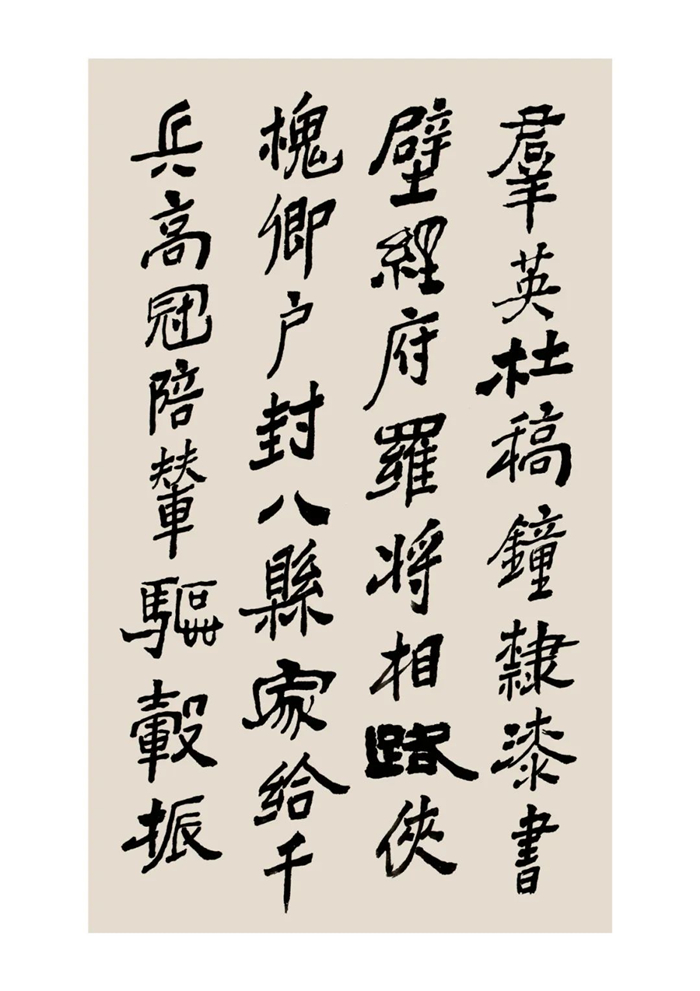 羣英杜稿鐘隸漆書
壁經府羅將相路俠
槐卿户封八縣家給千
兵高冠陪輦驅轂振